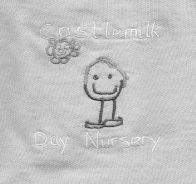 Castlemilk
Day Nursery